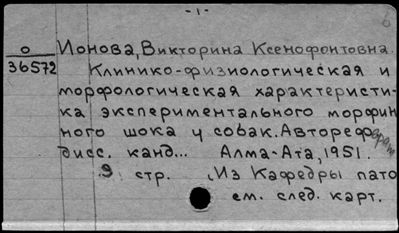 -1-
6
о
36572
Ионова, Викторина Ксенофонтовна.
Клинико-физиологическая и
морфологическая характеристи-
ка экспериментального морфин
ного шока у собак. Автореферат
дисс. канд... Алма-Ата, 1951.
9 стр. (Из Кафедры пато
см. след. карт.